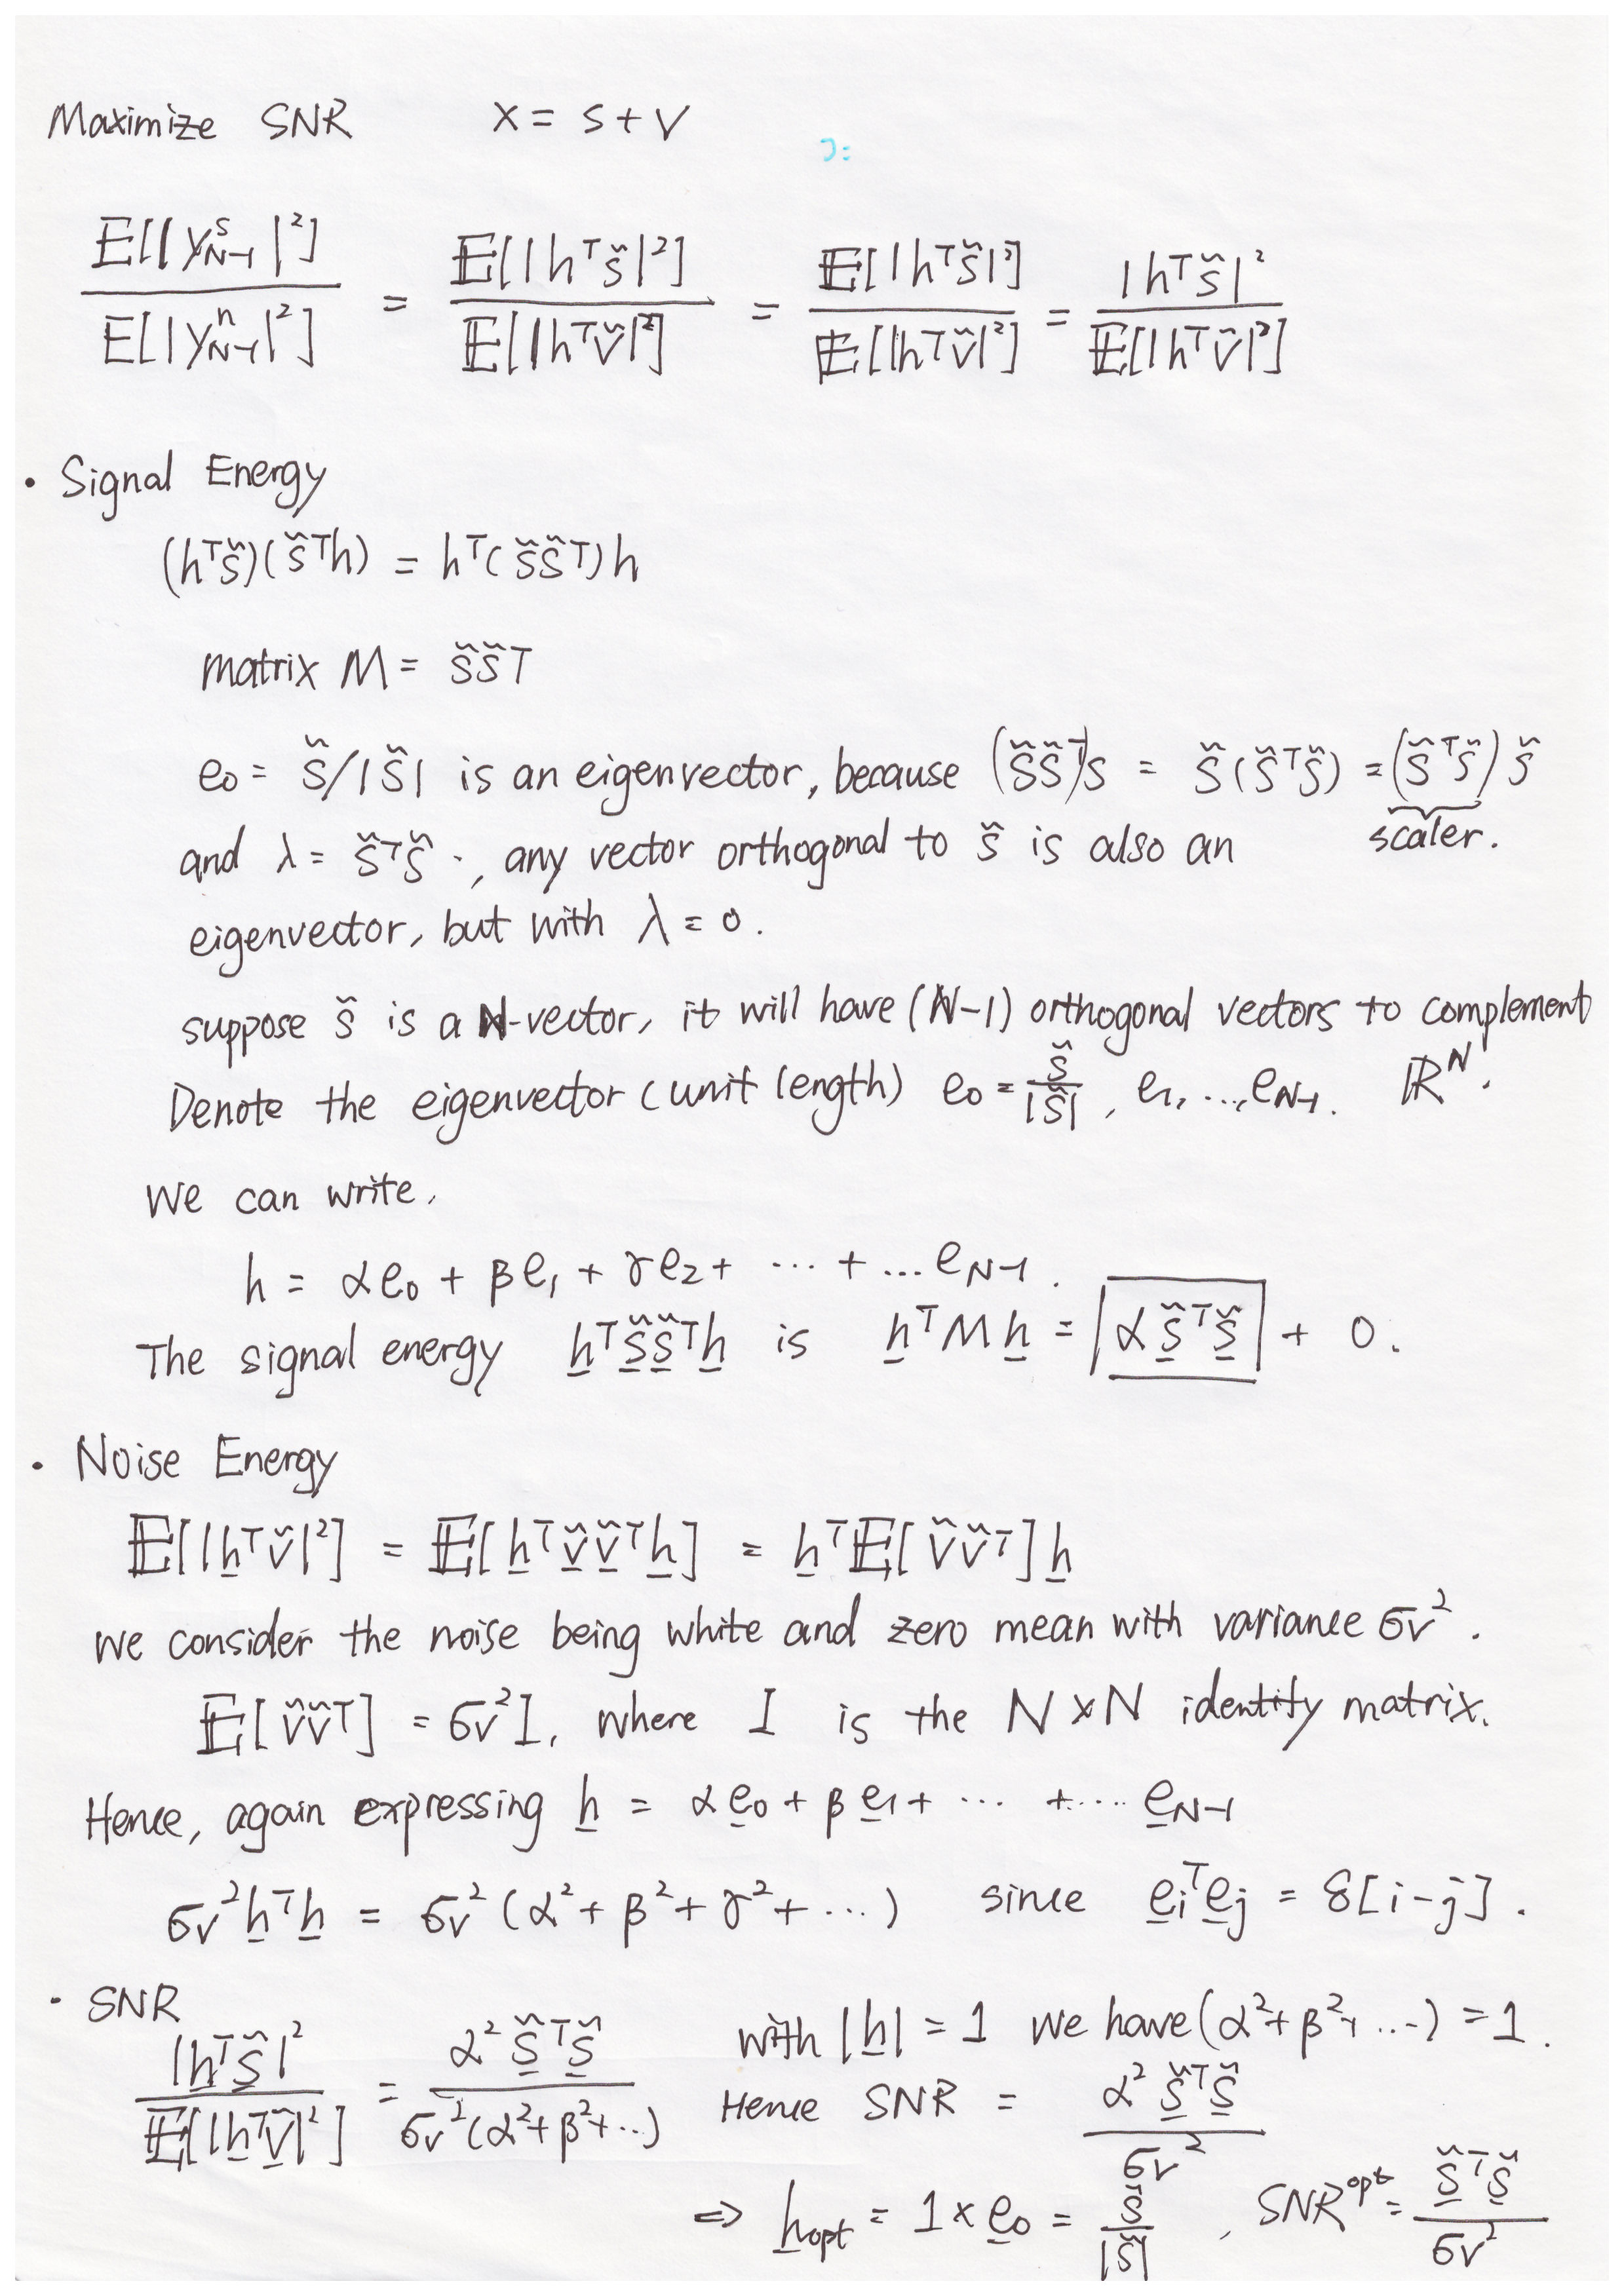 Maximize SNR x = s + v
J=
E[|y^s_{N-1}|²] / E[|y^n_{N-1}|²] = E[|h^T s̆|²] / E[|h^T v̆|²] = E[|h^T s̆|²] / E[|h^T v̆|²] = |h^T s̆|² / E[|h^T v̆|²]
• Signal Energy
(h^T s̆)(s̆^T h) = h^T(s̆s̆^T)h
matrix M = s̆s̆^T
e₀ = s̆/|s̆| is an eigenvector, because (s̆s̆^T)s = s̆(s̆^T s̆) = (s̆^T s̆) s̆
and λ = s̆^T s̆ ., any vector orthogonal to s̆ is also an scaler.
eigenvector, but with λ = 0.
suppose s̆ is a N-vector, it will have (N-1) orthogonal vectors to complement
Denote the eigenvector (unit length) e₀ = s̆/|s̆|, e₁, ..., e_{N-1}. ℝ^N.
We can write,
h = αe₀ + βe₁ + γe₂ + ... + ... e_{N-1}.
The signal energy h^T s̆s̆^T h is h^T M h = α s̆^T s̆ + 0.
• Noise Energy
E[|h^T v̆|²] = E[h^T v̆v̆^T h] = h^T E[v̆v̆^T]h
we consider the noise being white and zero mean with variance σv².
E[v̆v̆^T] = σv²I, where I is the N×N identity matrix.
Hence, again expressing h = αe₀ + βe₁ + ... + .... e_{N-1}
σv²h^T h = σv²(α² + β² + γ² + ...) since eᵢ^T eⱼ = δ[i-j].
• SNR
|h^T s̆|² / E[|h^T v̆|²] = α² s̆^T s̆ / σv²(α²+β²+..) with |h| = 1 we have (α²+β²+...) = 1.
Hence SNR = α² s̆^T s̆ / σv²
⇒ h_opt = 1 × e₀ = s̆/|s̆| , SNR^opt = s̆^T s̆ / σv²